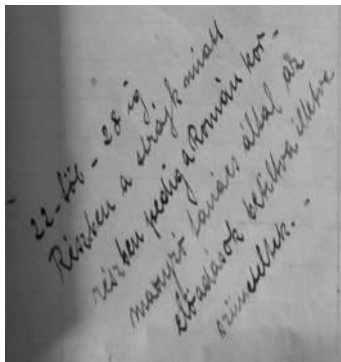 22-től - 28 ig
Részben a strájk miatt
részben pedig a Román kor-
mányzó tanács által az
előadások betiltva illetve
szüneteltek. -